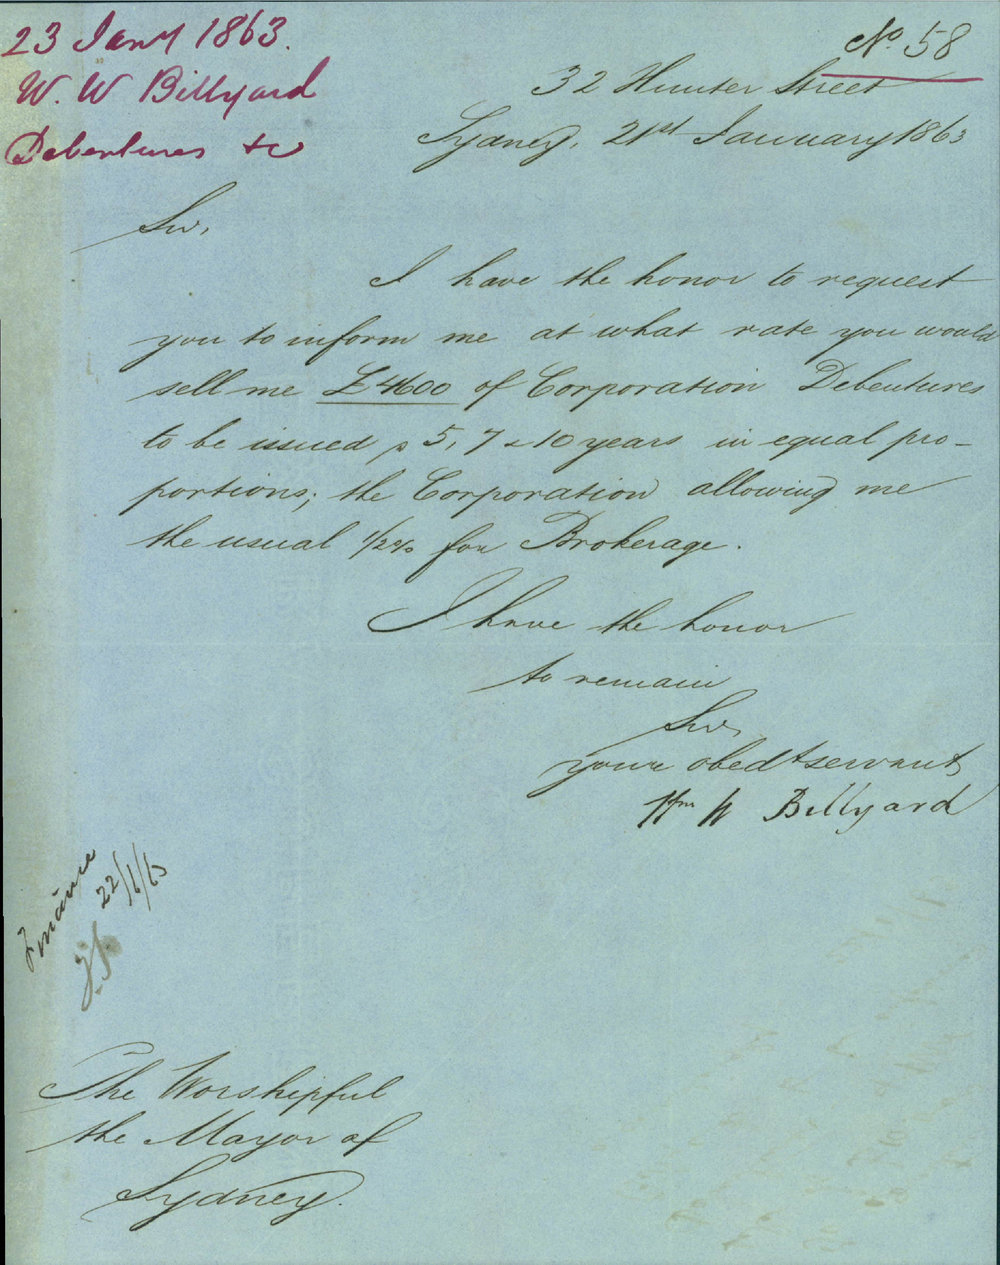 23 Jany 1863.
W. W Billyard
Debentures &c
No. 58
32 Hunter Street
Sydney, 21st January 1863
Sir,
I have the honor to request
you to inform me at what rate you would
sell me £4600 of Corporation Debentures
to be issued p 5, 7 & 10 years in equal pro-
portions; the Corporation allowing me
the usual 1/2 % for Brokerage.
I have the honor
to remain
Sir,
your obedt servant
Wm W Billyard
Finance
22/1/63
The Worshipful
the Mayor of
Sydney.